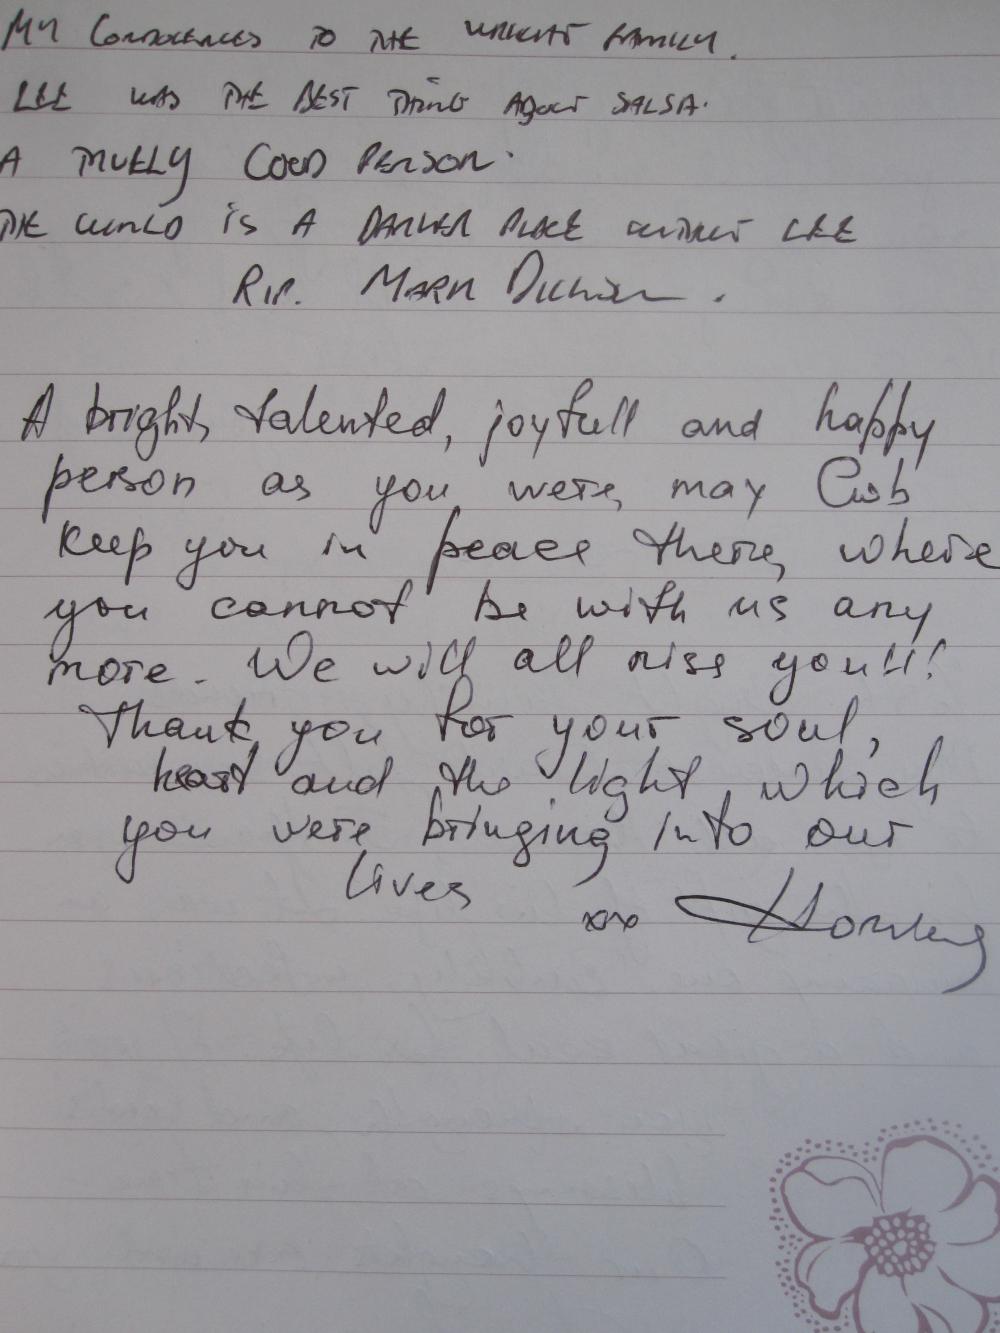 MY CONDOLENCES TO THE WRIGHT FAMILY.
LEE WAS THE BEST THING ABOUT SALSA.
A TRUELY GOOD PERSON.
THE WORLD IS A DARKER PLACE WITHOUT LEE
R.I.P. MARK
A bright, talented, joyfull and happy
person as you were, may God
keep you in peace there, where
you cannot be with us any
more. We will all miss you!!!
Thank you for your soul,
heart and the light, which
you were bringing into our
lives
xx